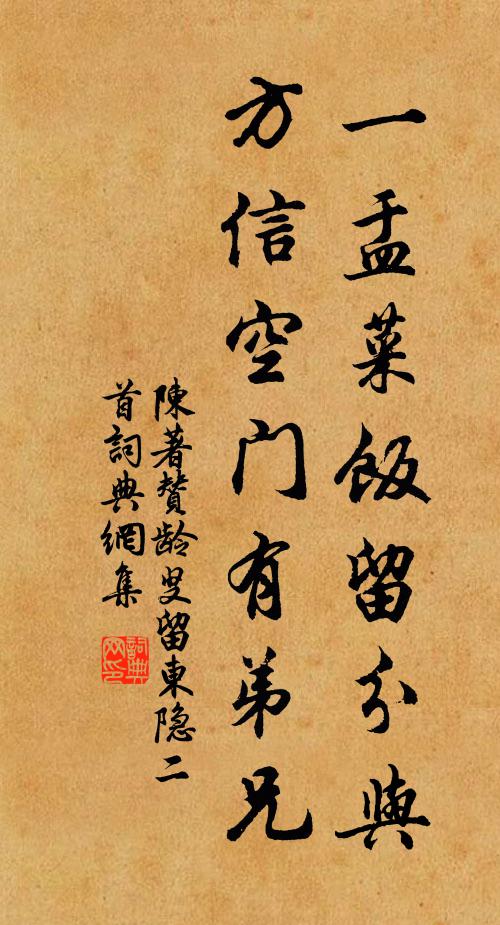 一盂菜飯留分與
方信空門有弟兄
陳著贊龄叟留東隐二
首詞典網集
詞典
网印